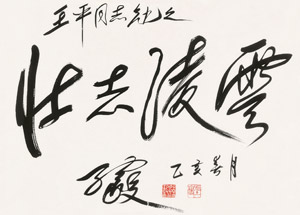 王平同志纪之
壮志凌雲
乙亥春月